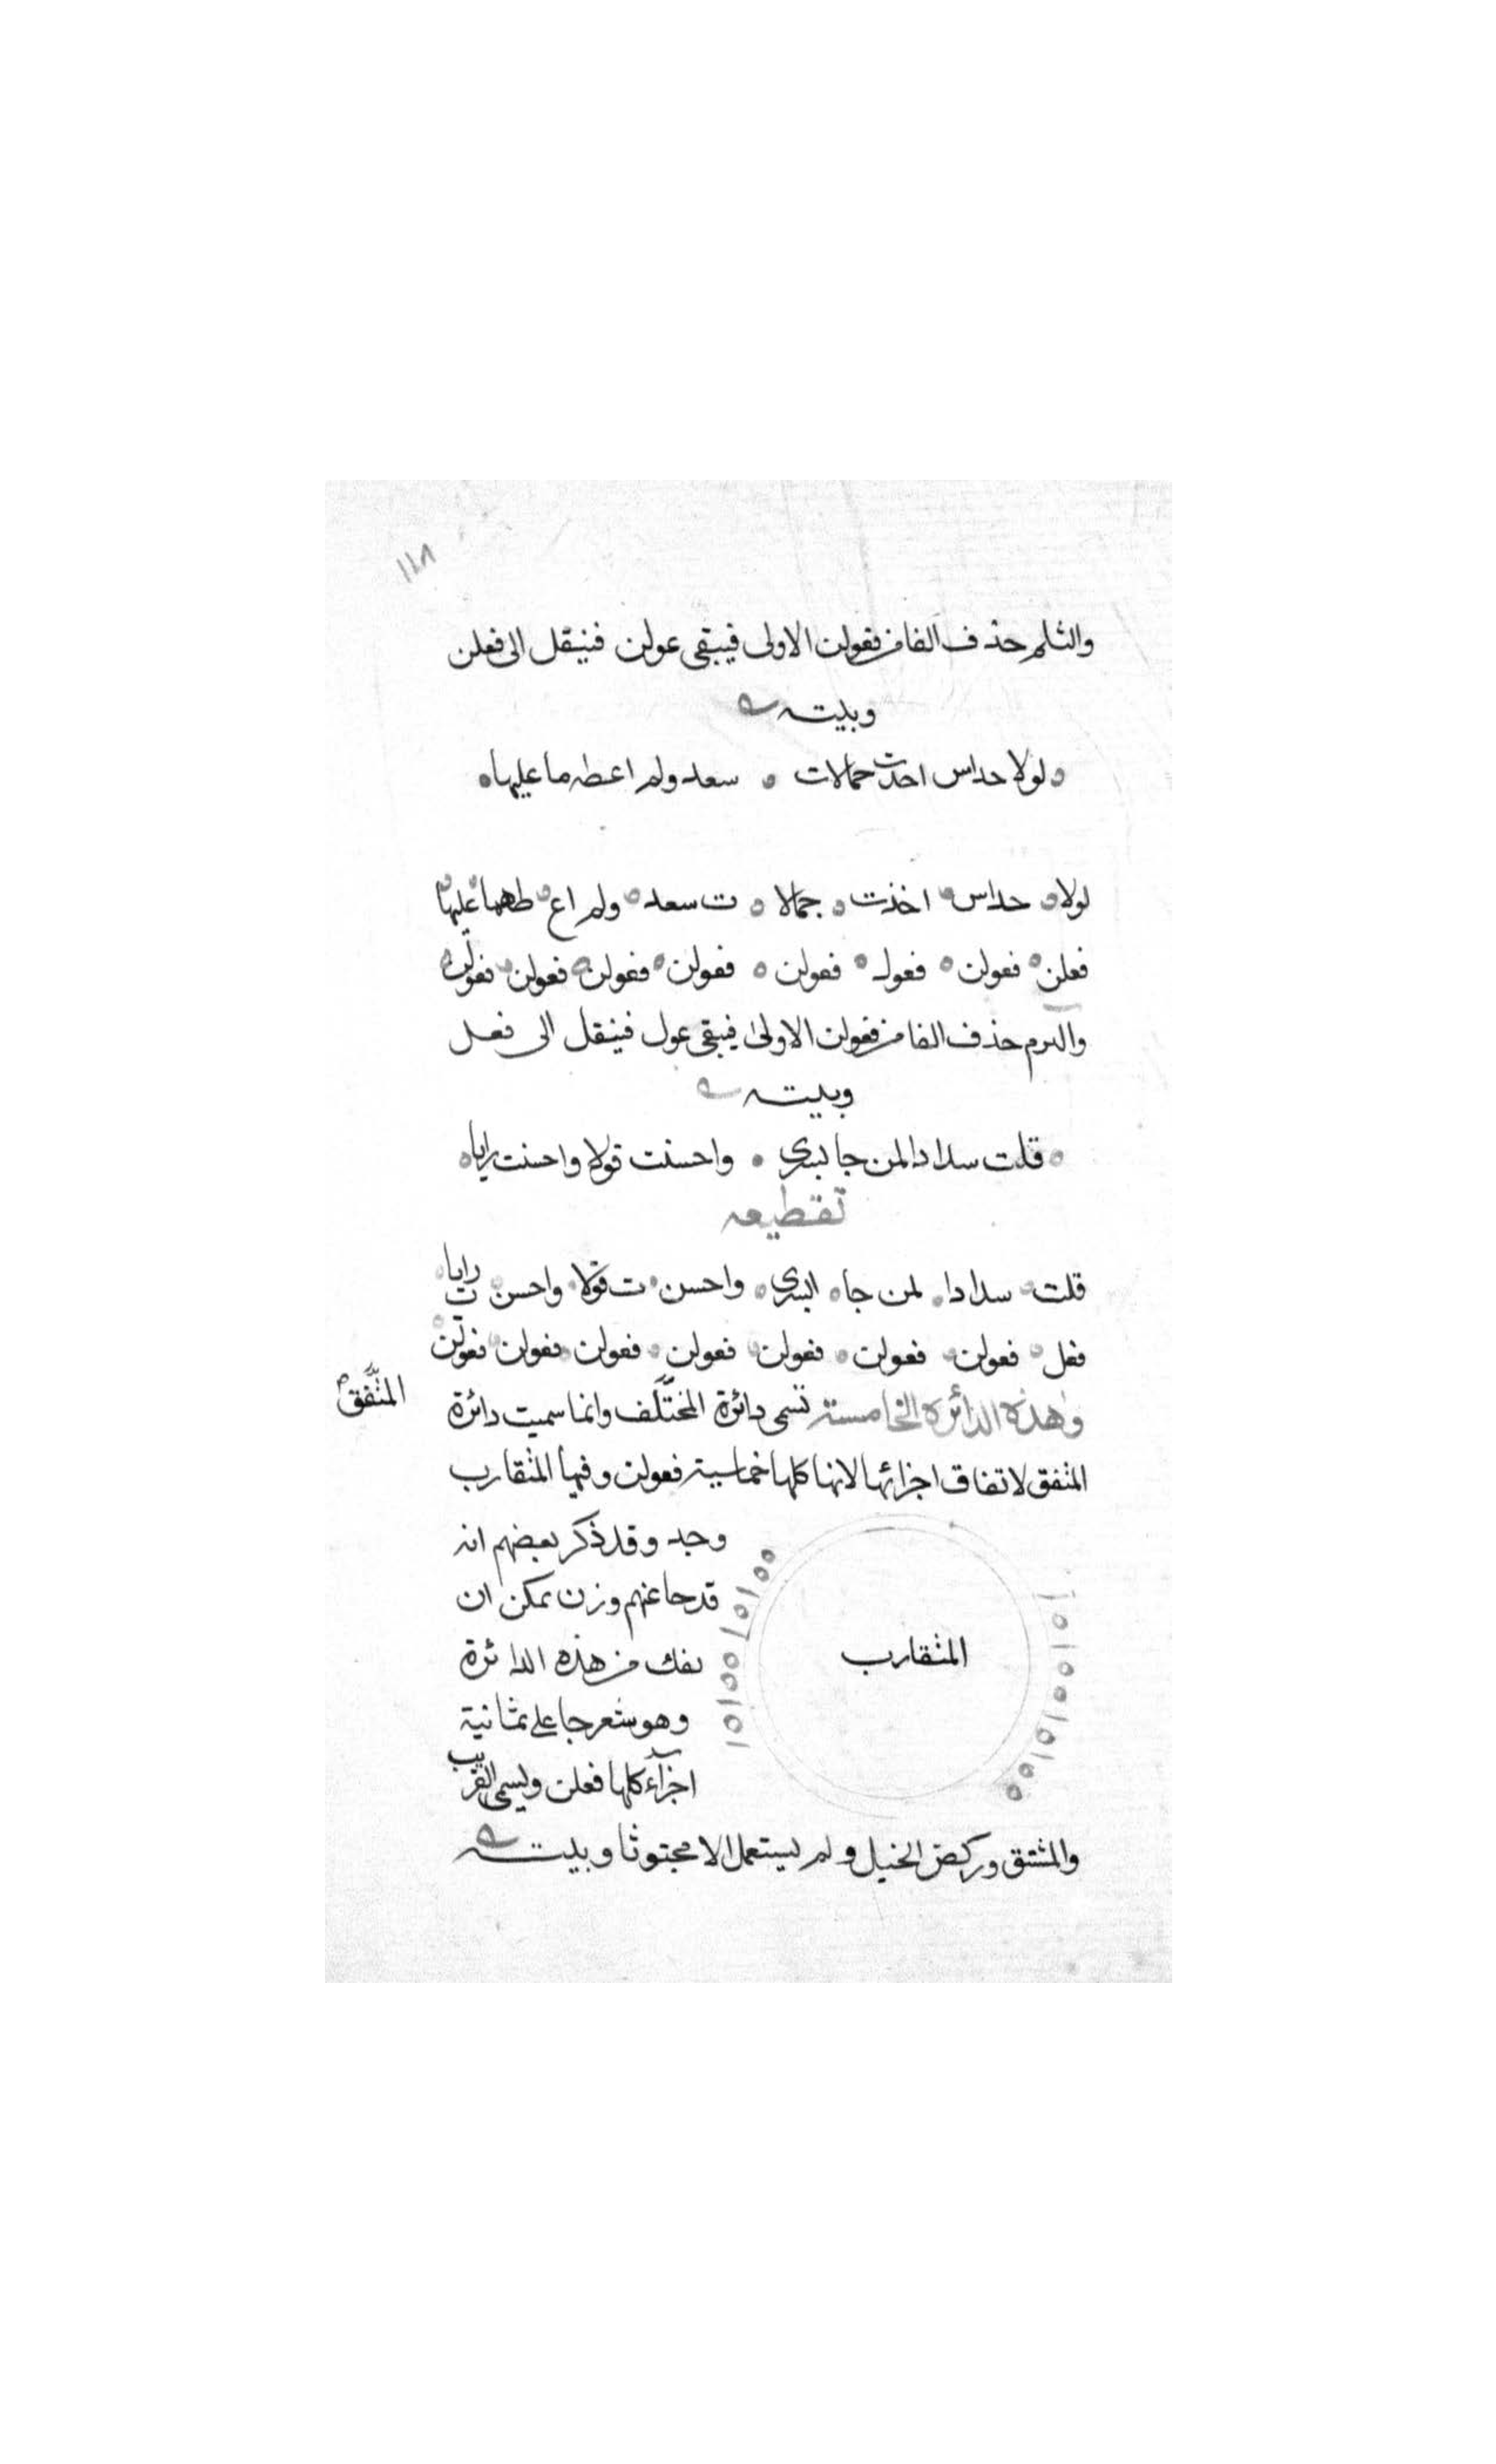 ١١٨
والثلم حذف الفا من فعولن الاولى فيبقى عولن فينقل الى فعلن
وبيته
لولا حداس احدت حمالات ۰ سعد ولم اعطه ما عليها
لولا ۰ حداس ۰ اخذت ۰ جمالا ۰ ت سعد ۰ ولم اع ۰ طهما ۰ عليها
فعلن ۰ فعولن ۰ فعول ۰ فعولن ۰ فعولن ۰ فعولن ۰ فعولن ۰ فعولن
والثرم حذف الفا من فعولن الاولى فيبقى عول فينقل الى فعل
وبيته
۰ قلت سدادا لمن جا يسرى ۰ واحسنت قولا واحسنت رايا ۰
تقطيعه
قلت ۰ سدادا ۰ لمن جا ۰ ايسرى ۰ واحسن ۰ ت قولا ۰ واحسن ۰ ت رايا
فعل ۰ فعولن ۰ فعولن ۰ فعولن ۰ فعولن ۰ فعولن ۰ فعولن ۰ فعولن
وهذه الدائره الخامسة تسمى دائرة المختلف وانما سميت دائرة
المتفق
المتفق لاتفاق اجزائها لانها كلها خماسية فعولن وفيها المتقارب
وحده وقد ذكر بعضهم انه
قد جا عنهم وزن يمكن ان
يفك من هذه الدائرة
المتقارب
وهو شعر جا على ثمانية
اجزآء كلها فعلن ويسمى الغريب
والمشتق وركض الخيل ولم يستعمل الا مجتوثا وبيته